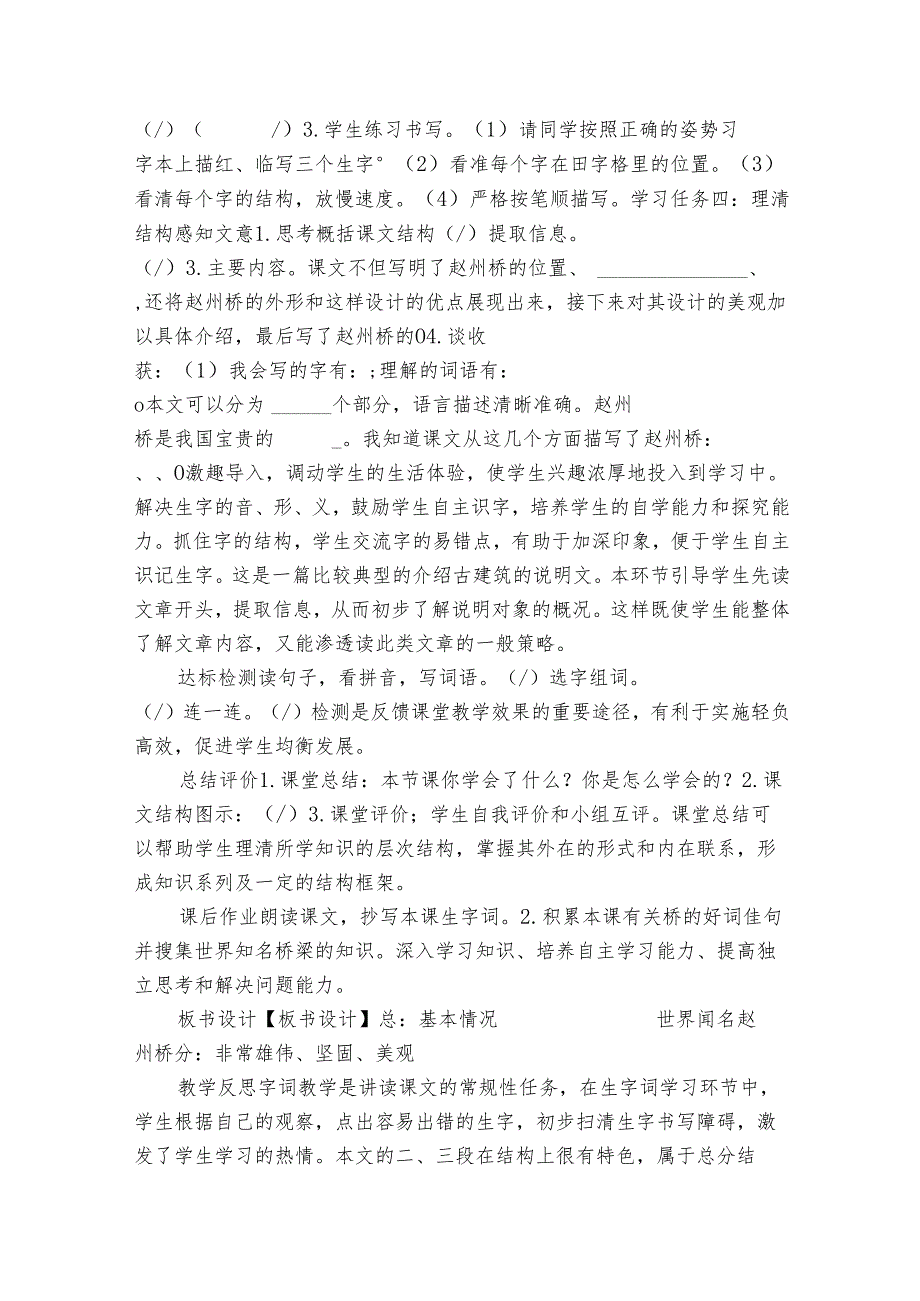 （/）（　　　/）3.学生练习书写。（1）请同学按照正确的姿势习
字本上描红、临写三个生字°（2）看准每个字在田字格里的位置。（3）
看清每个字的结构，放慢速度。（4）严格按笔顺描写。学习任务四：理清
结构感知文意1.思考概括课文结构（/）提取信息。
（/）3.主要内容。课文不但写明了赵州桥的位置、 _______________、
,还将赵州桥的外形和这样设计的优点展现出来，接下来对其设计的美观加
以具体介绍，最后写了赵州桥的04.谈收
获：（1）我会写的字有：;理解的词语有：
o本文可以分为 ______个部分，语言描述清晰准确。赵州
桥是我国宝贵的　　　_。我知道课文从这几个方面描写了赵州桥：
、、0激趣导入，调动学生的生活体验，使学生兴趣浓厚地投入到学习中。
解决生字的音、形、义，鼓励学生自主识字，培养学生的自学能力和探究能
力。抓住字的结构，学生交流字的易错点，有助于加深印象，便于学生自主
识记生字。这是一篇比较典型的介绍古建筑的说明文。本环节引导学生先读
文章开头，提取信息，从而初步了解说明对象的概况。这样既使学生能整体
了解文章内容，又能渗透读此类文章的一般策略。
达标检测读句子，看拼音，写词语。（/）选字组词。
（/）连一连。（/）检测是反馈课堂教学效果的重要途径，有利于实施轻负
高效，促进学生均衡发展。
总结评价1.课堂总结：本节课你学会了什么？你是怎么学会的？2.课
文结构图示：（/）3.课堂评价；学生自我评价和小组互评。课堂总结可
以帮助学生理清所学知识的层次结构，掌握其外在的形式和内在联系，形
成知识系列及一定的结构框架。
课后作业朗读课文，抄写本课生字词。2.积累本课有关桥的好词佳句
并搜集世界知名桥梁的知识。深入学习知识、培养自主学习能力、提高独
立思考和解决问题能力。
板书设计【板书设计】总：基本情况　　　　　　　世界闻名赵
州桥分：非常雄伟、坚固、美观
教学反思字词教学是讲读课文的常规性任务，在生字词学习环节中，
学生根据自己的观察，点出容易出错的生字，初步扫清生字书写障碍，激
发了学生学习的热情。本文的二、三段在结构上很有特色，属于总分结